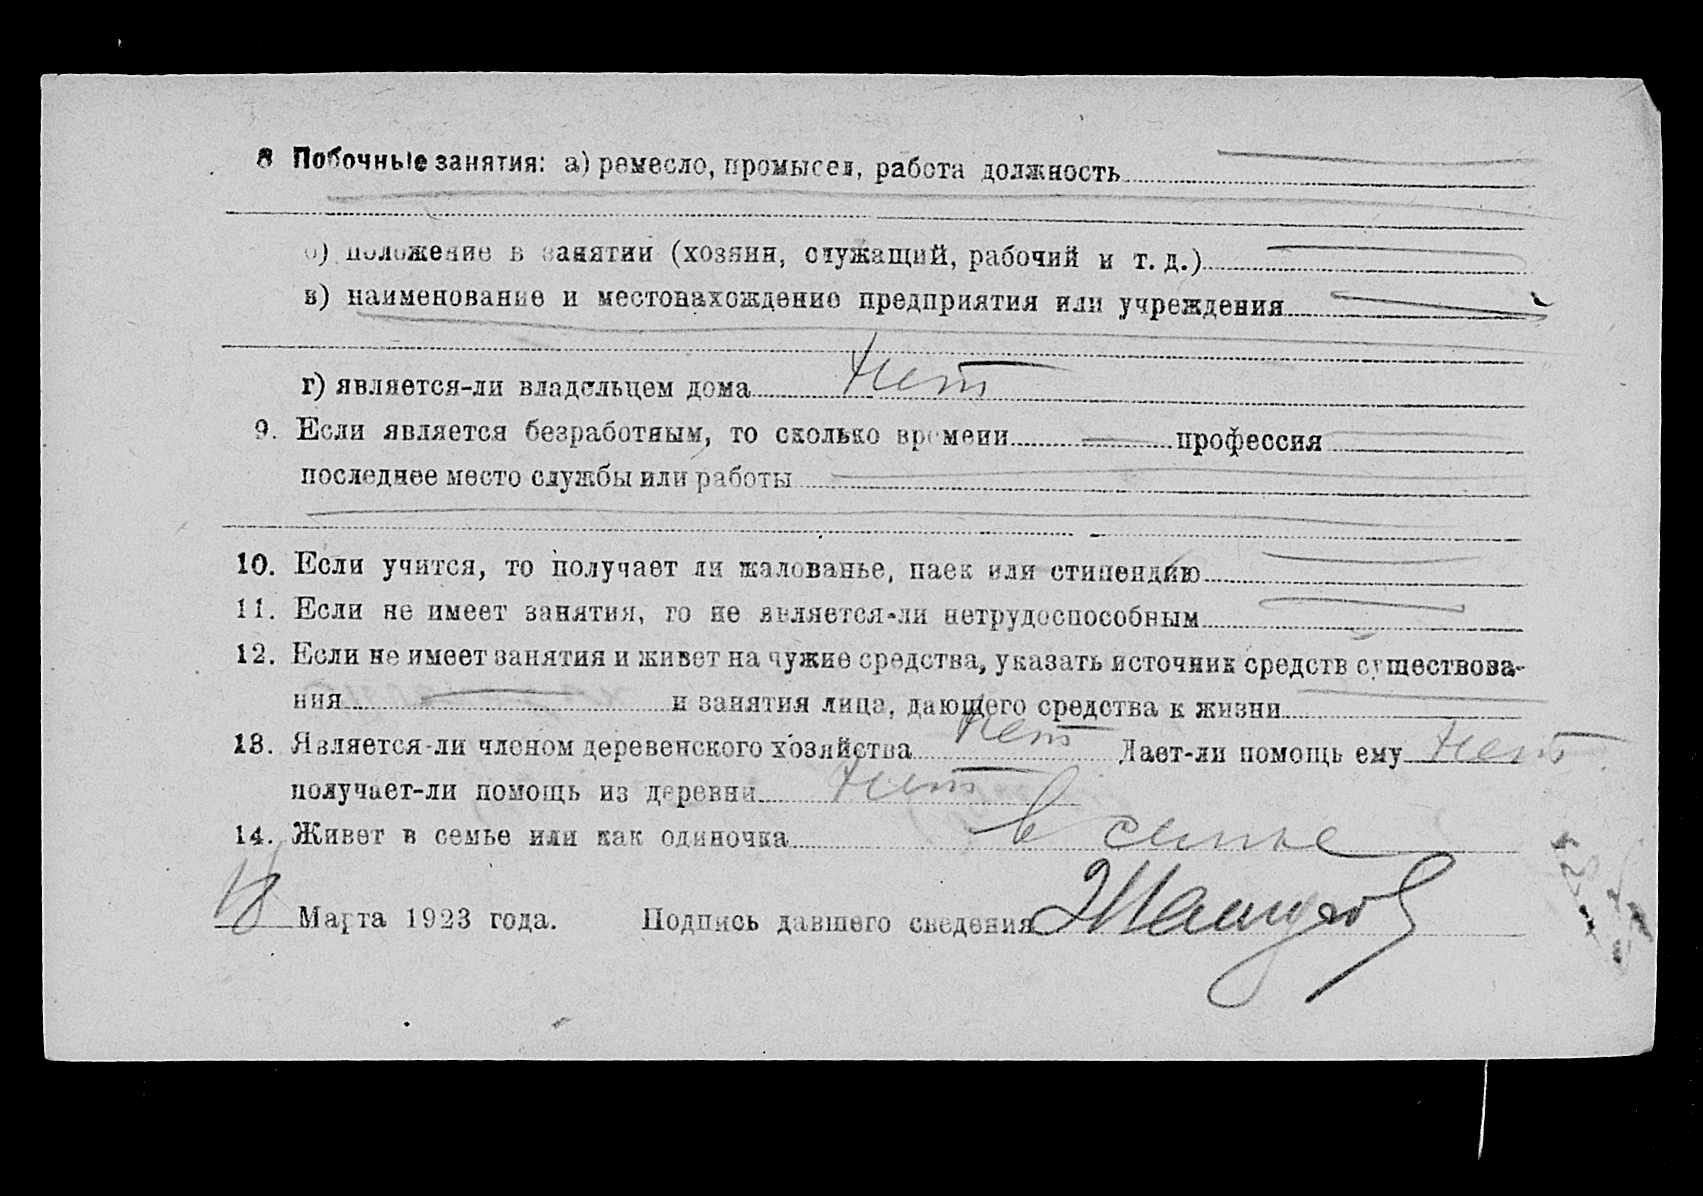 8 Побочные занятия: а) ремесло, промысел, работа должность
б) положение в занятии (хозяин, служащий, рабочий и т. д.)
в) наименование и местонахождение предприятия или учреждения
г) является-ли владельцем дома нет
9. Если является безработным, то сколько времени — профессия
последнее место службы или работы
10. Если учится, то получает ли жалованье, паек или стипендию
11. Если не имеет занятия, то не является-ли нетрудоспособным
12. Если не имеет занятия и живет на чужие средства, указать источник средств существова-
ния — и занятия лица, дающего средства к жизни
13. Является-ли членом деревенского хозяйства нет Дает-ли помощь ему нет
получает-ли помощь из деревни нет
14. Живет в семье или как одиночка в семье
18 Марта 1923 года. Подпись давшего сведения